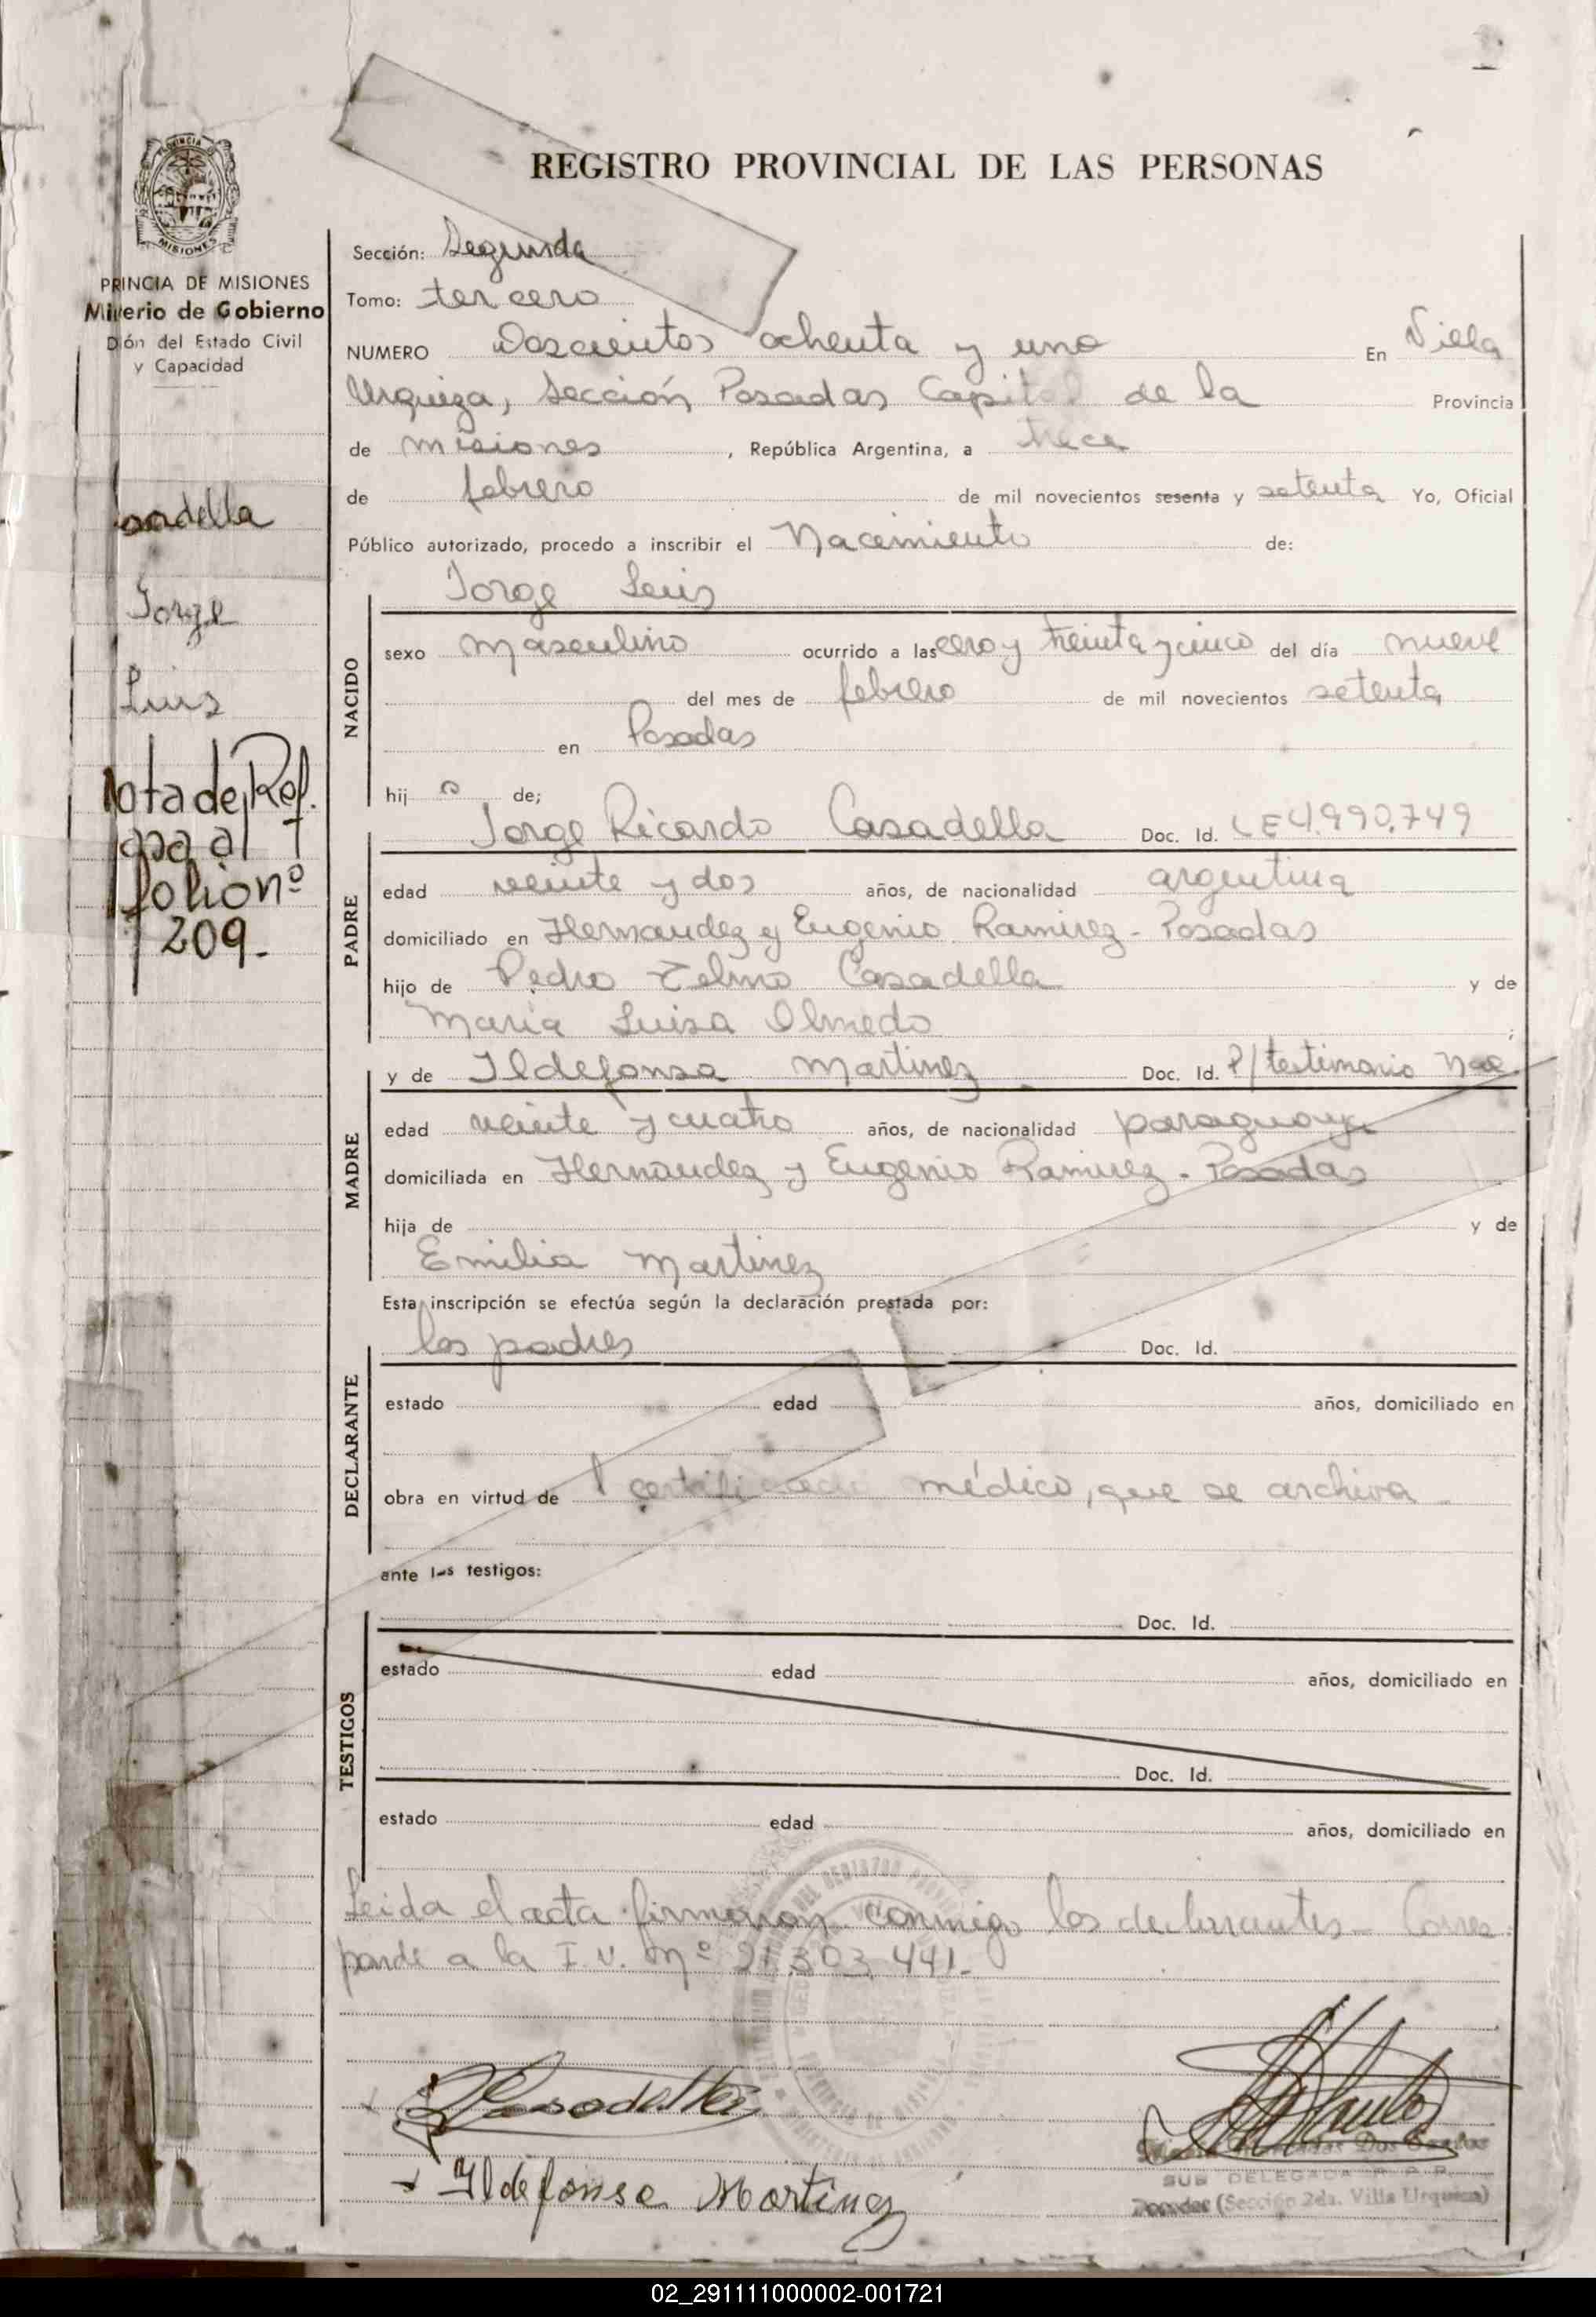 REGISTRO PROVINCIAL DE LAS PERSONAS
PROVINCIA
MISIONES
PRINCIA DE MISIONES
Miterio de Gobierno
Dión del Estado Civil
y Capacidad
Sección: Segunda
Tomo: tercero
NUMERO Doscientos ochenta y uno En Villa
Urquiza, Sección Posadas Capital de la Provincia
de misiones, República Argentina, a trece
de febrero de mil novecientos sesenta y setenta Yo, Oficial
Público autorizado, procedo a inscribir el Nacimiento de:
sadella
Jorge
Luis
ota de Ref.
pasa al T
folio nº
209.-
Jorge Luis
NACIDO
sexo masculino ocurrido a las cero y treinta y cinco del día nueve
del mes de febrero de mil novecientos setenta
en Posadas
hijo de;
Jorge Ricardo Casadella Doc. Id. LE 4.990.749
PADRE
edad veinte y dos años, de nacionalidad argentina
domiciliado en Hernandez y Eugenio Ramirez - Posadas
hijo de Pedro Telmo Casadella y de
María Luisa Olmedo
y de Ildefonsa Martinez Doc. Id. P/ testimonio Nac
MADRE
edad veinte y cuatro años, de nacionalidad paraguaya
domiciliada en Hernandez y Eugenio Ramirez - Posadas
hija de y de
Emilia Martinez
Esta inscripción se efectúa según la declaración prestada por:
los padres Doc. Id.
DECLARANTE
estado edad años, domiciliado en
obra en virtud de certificado médico, que se archiva
ante los testigos:
Doc. Id.
TESTIGOS
estado edad años, domiciliado en
Doc. Id.
estado edad años, domiciliado en
Leida el acta firmaron conmigo los declarantes - Corres
ponde a la I.U. Nº 21.303.441.-
Casadella
Ildefonsa Martinez
Dos Santos
SUB DELEGADA R. P. P.
Posadas (Sección 2da. Villa Urquiza)
02_291111000002-001721